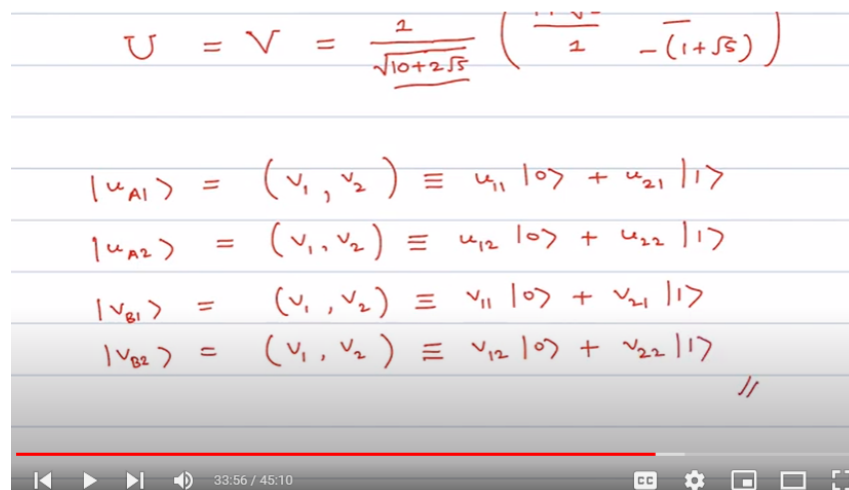 U = V = 1/√(10+2√5) ( 1 -(1+√5) )
|u_A1⟩ = (v₁, v₂) ≡ u₁₁ |0⟩ + u₂₁ |1⟩
|u_A2⟩ = (v₁, v₂) ≡ u₁₂ |0⟩ + u₂₂ |1⟩
|v_B1⟩ = (v₁, v₂) ≡ v₁₁ |0⟩ + v₂₁ |1⟩
|v_B2⟩ = (v₁, v₂) ≡ v₁₂ |0⟩ + v₂₂ |1⟩
//
33:56 / 45:10 CC